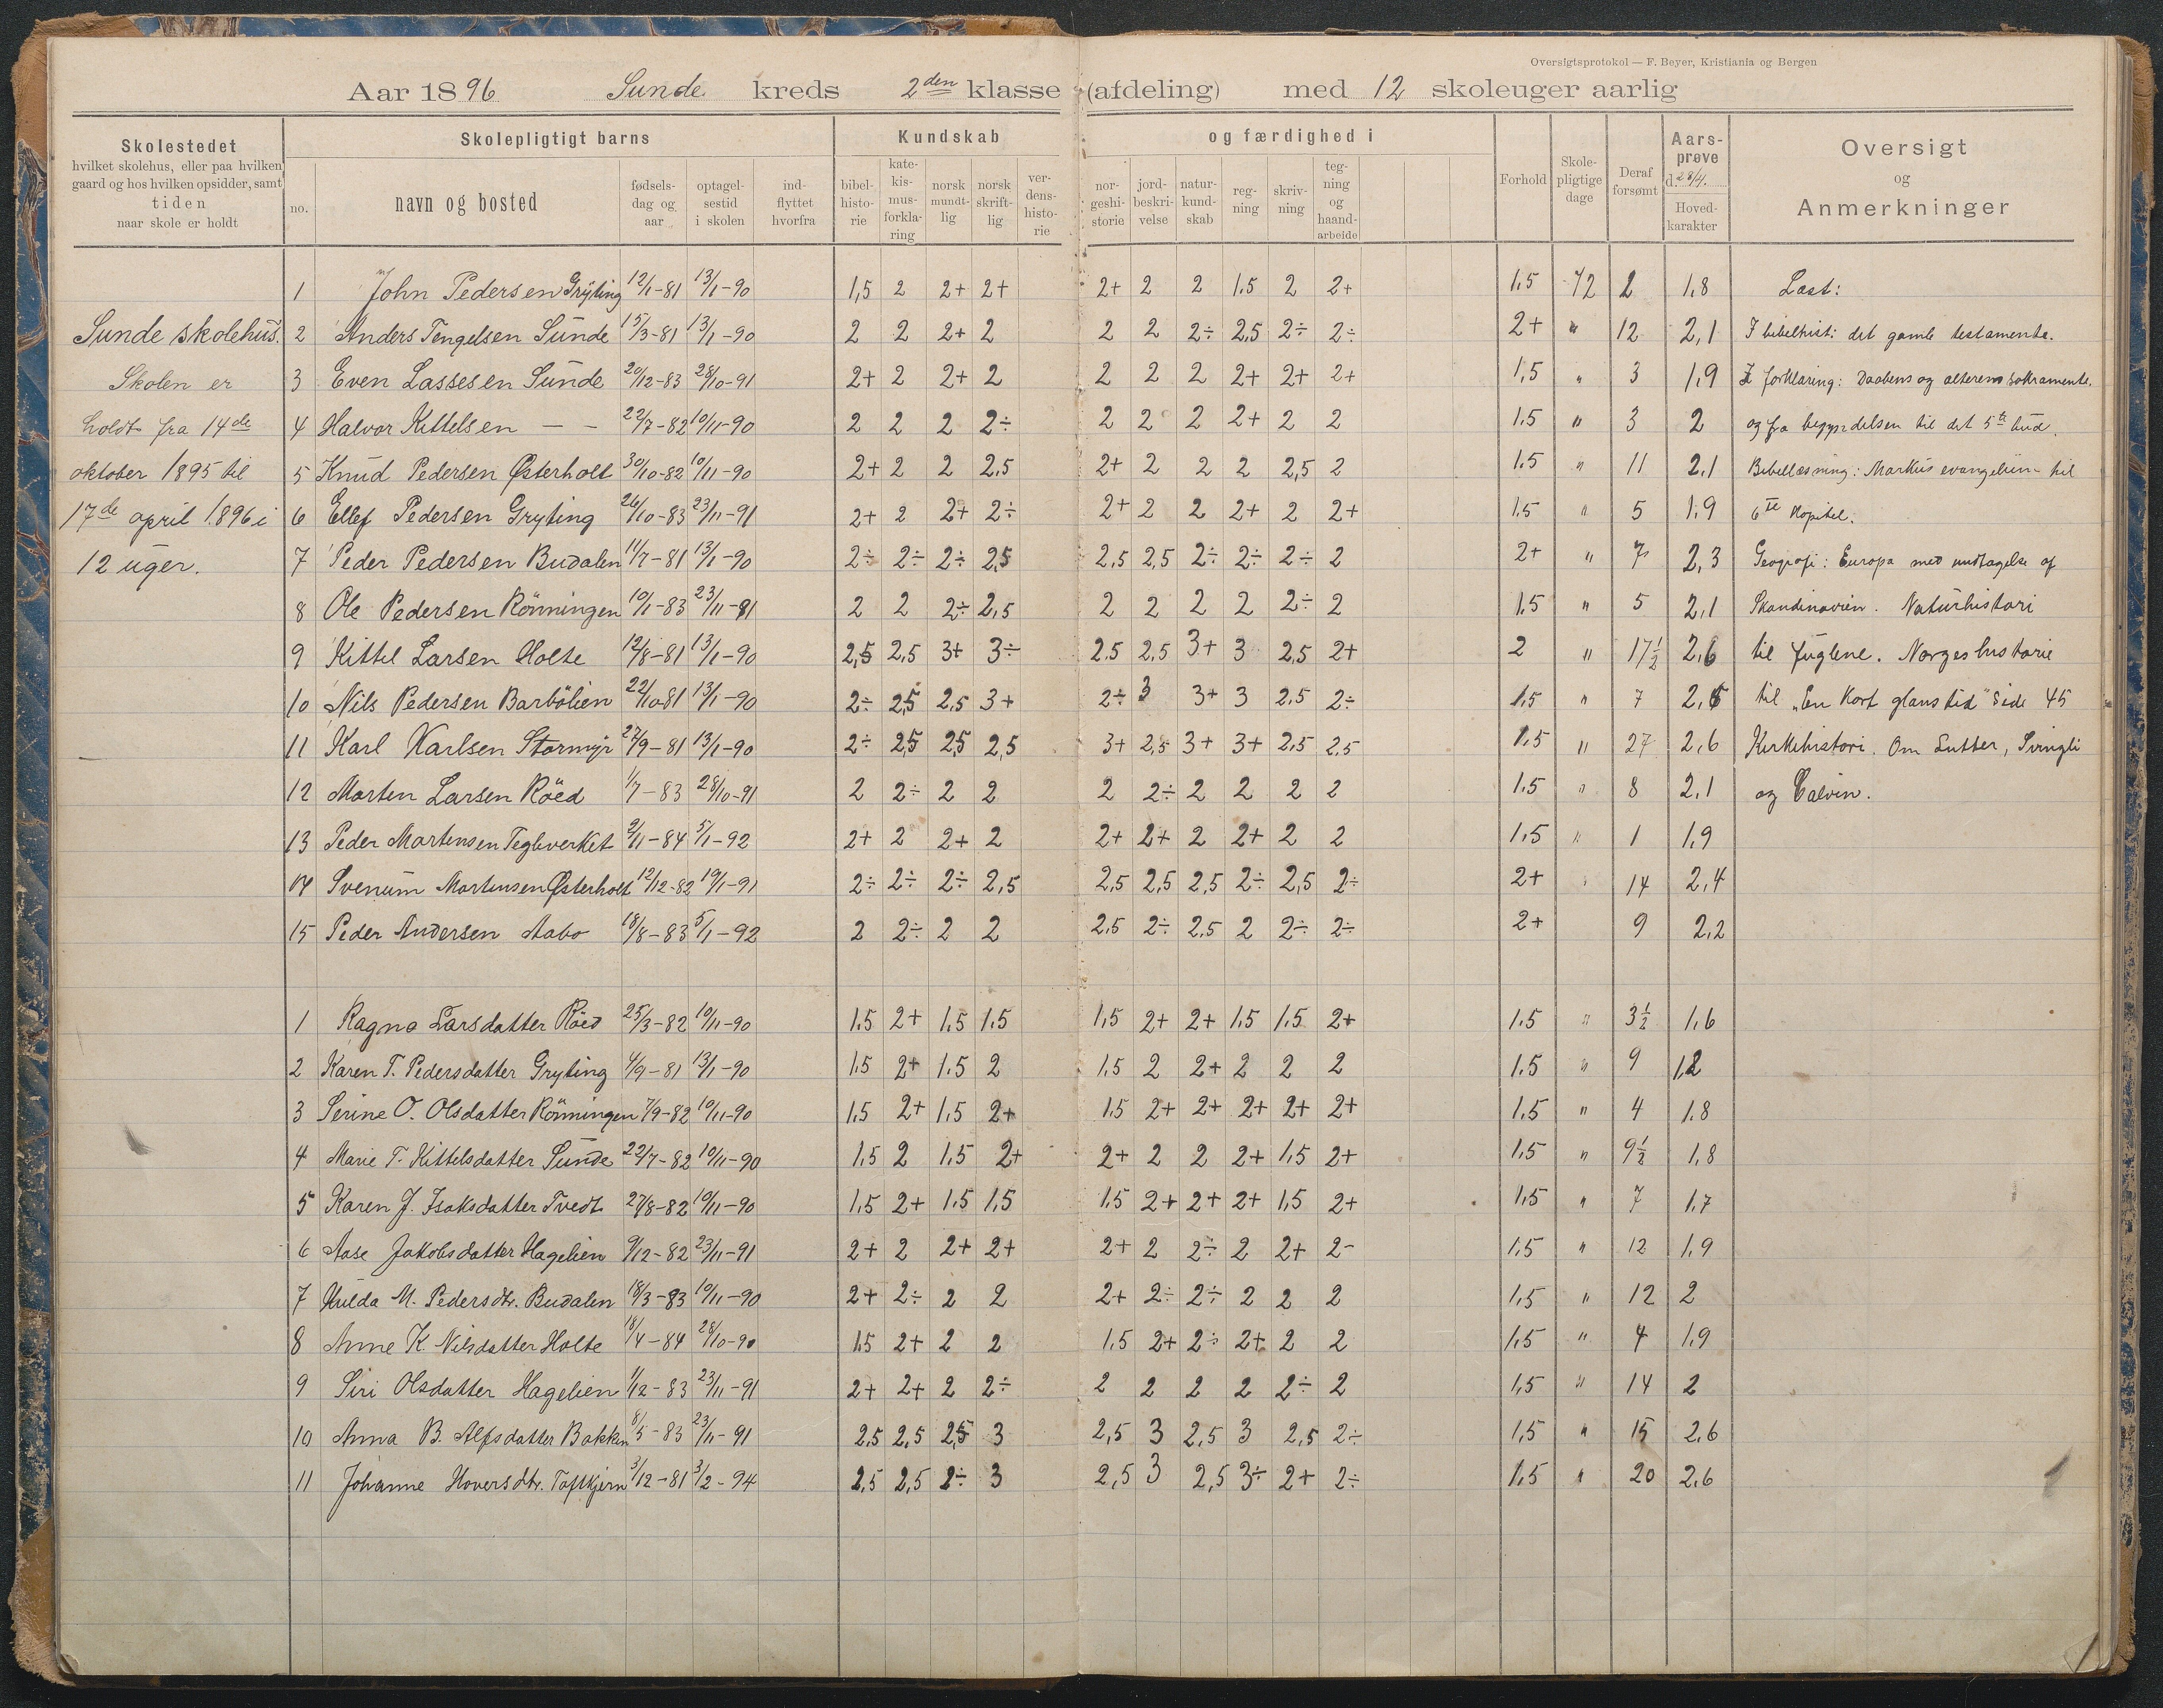 Oversigtsprotokol — F. Beyer, Kristiania og Bergen
Aar 1896 Sunde kreds 2den klasse (afdeling) med 12 skoleuger aarlig
Skolestedet
hvilket skolehus, eller paa hvilken
gaard og hos hvilken opsidder, samt
tiden
naar skole er holdt
Skolepligtigt barns
no.
navn og bosted
fødsels-
dag og
aar
optagel-
sestid
i skolen
ind-
flyttet
hvorfra
Kundskab
og færdighed i
bibel-
histo-
rie
kate-
kis-
mus-
forkla-
ring
norsk
mundt-
lig
norsk
skrift-
lig
ver-
dens-
histo-
rie
nor-
geshi-
storie
jord-
beskri-
velse
natur-
kund-
skab
reg-
ning
skriv-
ning
teg-
ning
og
haand-
arbeide
Forhold
Skole-
pligtige
dage
Deraf
forsømt
Aars-
prøve
d. 28/4.
Hoved-
karakter
Oversigt
og
Anmerkninger
Sunde skolehus.
Skolen er
holdt fra 14de
oktober 1895 til
17de april 1896 i
12 uger.
1 John Pedersen Gryting 12/1-81 13/1-90 1,5 2 2+ 2+ 2+ 2 2 1.5 2 2+ 1.5 72 2 1,8
2 Anders Tengelsen Sunde 15/3-81 13/1-90 2 2 2+ 2 2 2 2÷ 2,5 2÷ 2÷ 2+ " 12 2,1
3 Even Lassesen Sunde 20/12-83 28/10-91 2+ 2 2+ 2 2 2 2 2+ 2+ 2+ 1,5 " 3 1,9
4 Halvor Kittelsen — — 22/7-82 10/11-90 2 2 2 2÷ 2 2 2 2+ 2 2 1.5 " 3 2
5 Knud Pedersen Østerholt 30/10-82 10/11-90 2+ 2 2 2,5 2+ 2 2 2 2,5 2 1.5 " 11 2,1
6 Ellef Pedersen Gryting 26/10-83 23/11-91 2+ 2 2+ 2÷ 2+ 2 2 2+ 2 2+ 1.5 " 5 1.9
7 Peder Pedersen Budalen 11/7-81 13/1-90 2÷ 2÷ 2÷ 2,5 2,5 2,5 2÷ 2÷ 2÷ 2 2+ " 7 2,3
8 Ole Pedersen Rönningen 10/1-83 23/11-91 2 2 2÷ 2,5 2 2 2 2 2÷ 2 1.5 " 5 2,1
9 Kittel Larsen Holte 12/8-81 13/1-90 2,5 2,5 3+ 3÷ 2.5 2,5 3+ 3 2,5 2+ 2 " 17½ 2,6
10 Nils Pedersen Barbölien 22/10-81 13/1-90 2÷ 2,5 2,5 3+ 2÷ 3 3+ 3 2,5 2÷ 1.5 " 7
11 Karl Karlsen Stormyr 27/9-81 13/1-90 2÷ 2,5 2,5 2,5 3+ 2,5 3+ 3+ 2,5 2,5 1.5 " 27 2,6
12 Morten Larsen Röed 1/7-83 28/10-91 2 2÷ 2 2 2 2÷ 2 2 2 2 1.5 " 8 2,1
13 Peder Martensen Teglverket 2/11-84 5/1-92 2+ 2 2+ 2 2+ 2+ 2 2+ 2 2 1,5 " 1 1,9
14 Svenum Martensen Østerholt 12/12-82 19/1-91 2÷ 2÷ 2÷ 2,5 2,5 2,5 2,5 2÷ 2,5 2÷ 2+ " 14 2,4
15 Peder Andersen Aabo 18/8-83 5/1-92 2 2÷ 2 2 2,5 2÷ 2,5 2 2÷ 2÷ 2+ 9 2,2
1 Ragna Larsdatter Röed 25/3-82 10/11-90 1.5 2+ 1,5 1.5 1,5 2+ 2+ 1,5 1,5 2+ 1.5 " 3½ 1,6
2 Karen T. Pedersdatter Gryting 4/9-81 13/1-90 1.5 2+ 1.5 2 1,5 2 2+ 2 2 2 1.5 " 9
3 Serine O. Olsdatter Rönningen 7/9-82 10/11-90 1,5 2+ 1,5 2+ 1.5 2+ 2+ 2+ 2+ 2+ 1.5 " 4 1.8
4 Marie T. Kittelsdatter Sunde 22/7-82 10/11-90 1.5 2 1.5 2+ 2+ 2 2 2+ 1,5 2+ 1.5 " 9½ 1,8
5 Karen J. Isaksdatter Tvedt 27/8-82 10/11-90 1,5 2+ 1.5 1,5 1.5 2+ 2+ 2+ 1,5 2+ 1.5 " 7 1,7
6 Aase Jakobsdatter Hagelien 9/12-82 23/11-91 2+ 2 2+ 2+ 2+ 2 2÷ 2 2+ 2- 1,5 " 12 1,9
7 Hulda M. Pedersdtr. Budalen 18/3-83 10/11-90 2+ 2÷ 2 2 2+ 2÷ 2÷ 2 2 2 1,5 " 12 2
8 Anne K. Nilsdatter Holte 18/4-84 28/10-90 1.5 2+ 2 2 1,5 2+ 2÷ 2+ 2 2 1,5 " 4 1.9
9 Siri Olsdatter Hagelien 1/12-83 23/11-91 2+ 2+ 2 2÷ 2 2 2 2 2÷ 2 1,5 " 14 2
10 Anna B. Alfsdatter Bakken 8/5-83 23/11-91 2,5 2,5 2,5 3 2,5 3 2,5 3 2,5 2÷ 1,5 " 15 2,6
11 Johanne Hoversdtr. Toftkjern 3/12-81 3/2-94 2,5 2,5 2÷ 3 2,5 3 2,5 3÷ 2+ 2÷ 1.5 " 20 2,6
Læst:
I bibelhist: det gamle testamente.
I forklaring: Daabens og alterens sakramente.
og fra begyndelsen til det 5te bud.
Bibellæsning: Markus evangelium til
6te kapitel.
Geografi: Europa med undtagelse af
Skandinavien. Naturhistori
til fuglene. Norgeshistorie
til "En kort glanstid" side 45
Kirkehistori. Om Lutter, Svingli
og Calvin.